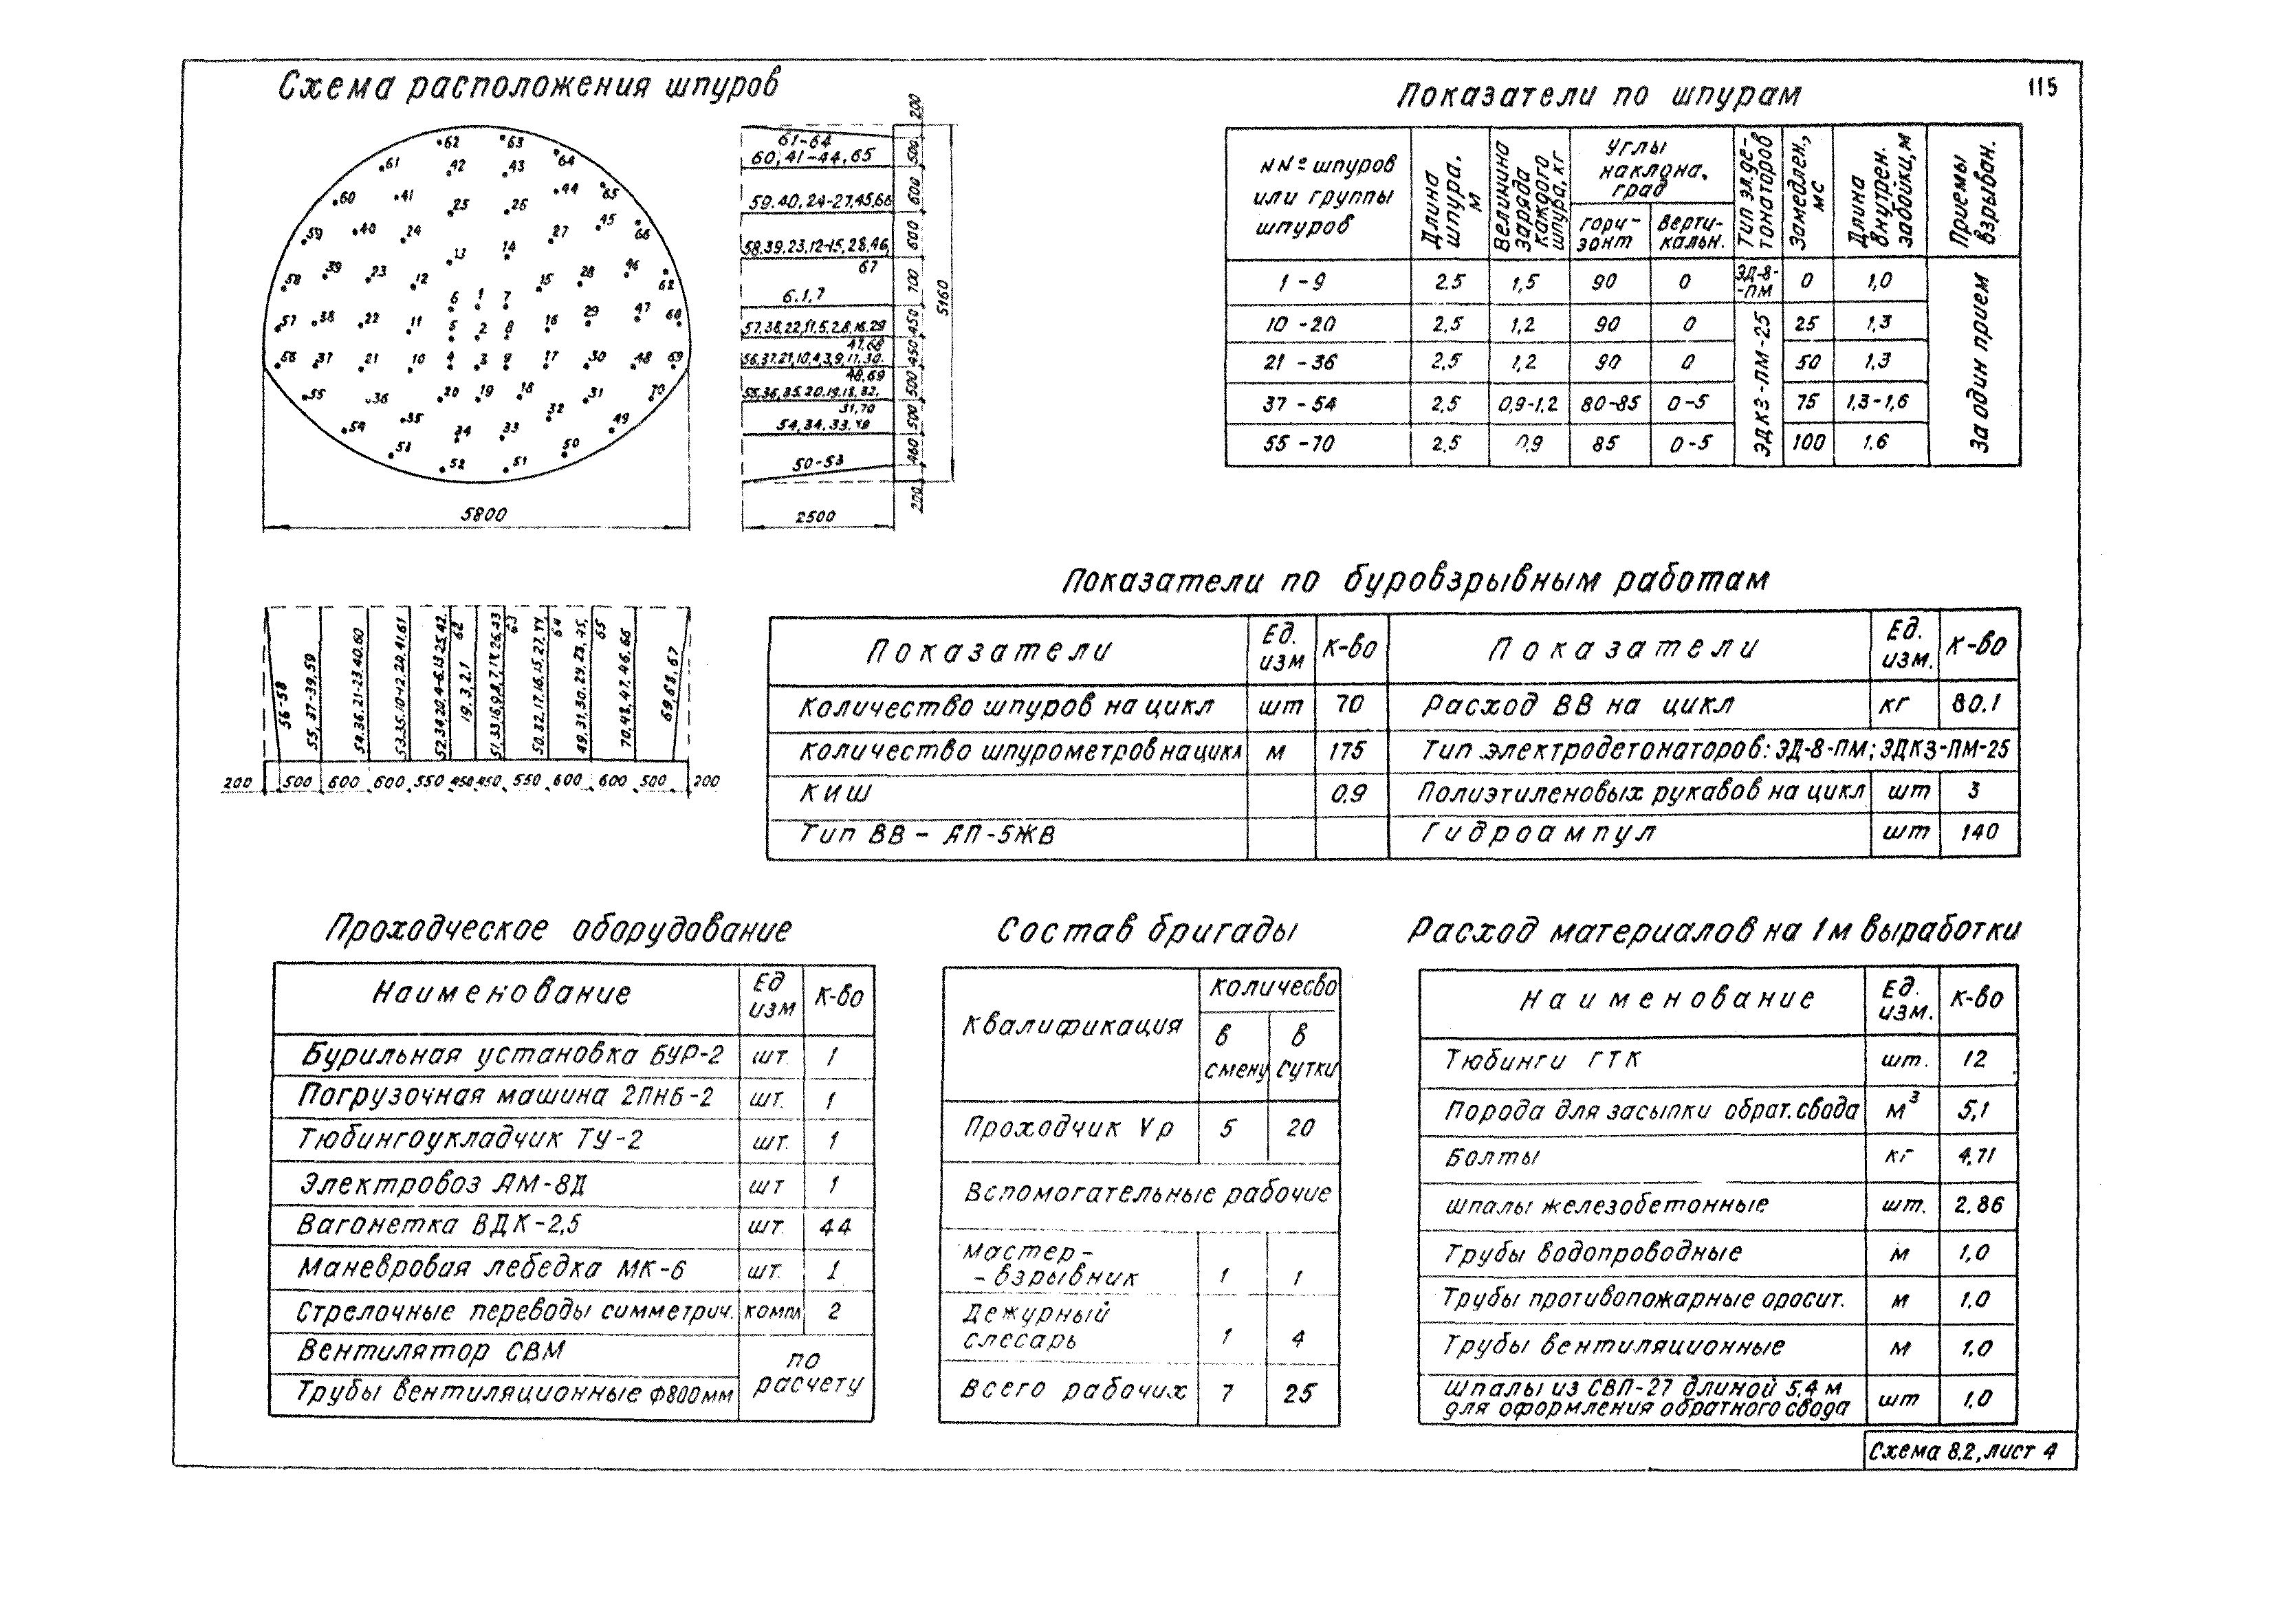 115
Схема расположения шпуров
62 63
61 42 43 64
60 41 25 26 44 65
59 40 24 13 14 27 45 66
58 39 23 12 15 28 46 62
6 1 7
57 38 22 11 5 2 8 16 29 47 68
56 37 21 10 4 3 9 17 30 48 69
55 36 20 19 18 31 70
54 35 34 33 32 49
53 52 51 50
5800
61-64
60,41-44,65
59.40,24-27,45,66
58,39.23,12-15,28,46,
67
6.1,7
57,38,22,11,5,2,8,16,29
47,68
56,37,21,10,4,3,9,17,30.
48,69
55,36,35.20.19.18.32.
31,70
54,34.33.49
50-53
2500
200 500 600 600 700 450 450 500 500 460 200
5160
56-58
55,37-39,59
54,36,21-23,40,60
53,35,10-12,24,41,61
52,34,20,4-6,13,25,42,
62
19,3,2,1
51,33,18,9,8,7,14,26,43
63
50,32,17,16,15,27,44
64
49,31,30,29,28,45,
65
70,48,47,46,66
69,68,67
200 500 600 600 550 450 450 550 600 600 500 200
Показатели по шпурам
NNº шпуров или группы шпуров
Длина шпура, м
Величина заряда каждого шпура, кг
Углы наклона, град
гори-зонт
верти-кальн.
Тип эл.де-тонаторов
Замедлен, мс
Длина внутрен. забойки, м
Приемы взрыван.
1-9 2.5 1,5 90 0 ЭД-8--ПМ 0 1,0
10-20 2,5 1,2 90 0 25 1,3
21-36 2,5 1,2 90 0 50 1,3
37-54 2,5 0,9-1,2 80-85 0-5 75 1,3-1,6
55-70 2,5 0,9 85 0-5 100 1.6
ЭДКЗ-ПМ-25
За один прием
Показатели по буровзрывным работам
Показатели Ед. изм К-во Показатели Ед. изм. К-во
Количество шпуров на цикл шт 70 Расход ВВ на цикл кг 80.1
Количество шпурометров на цикл м 175 Тип электродетонаторов: ЭД-8-ПМ; ЭДКЗ-ПМ-25
КИШ 0.9 Полиэтиленовых рукавов на цикл шт 3
Тип ВВ - АП-5ЖВ Гидроампул шт 140
Проходческое оборудование
Наименование Ед изм К-во
Бурильная установка БУР-2 шт. 1
Погрузочная машина 2ПНБ-2 шт. 1
Тюбингоукладчик ТУ-2 шт. 1
Электровоз АМ-8Д шт 1
Вагонетка ВДК-2,5 шт. 44
Маневровая лебедка МК-6 шт. 1
Стрелочные переводы симметрич. компл 2
Вентилятор СВМ
Трубы вентиляционные Ф800мм
по расчету
Состав бригады
Квалификация Количесво
в смену в сутки
Проходчик Vр 5 20
Вспомогательные рабочие
Мастер-
-взрывник 1 1
Дежурный
слесарь 1 4
Всего рабочих 7 25
Расход материалов на 1м выработки
Наименование Ед. изм. К-во
Тюбинги ГТК шт. 12
Порода для засыпки обрат.свода м3 5,1
Болты кг 4,71
Шпалы железобетонные шт. 2.86
Трубы водопроводные м 1,0
Трубы противопожарные оросит. м 1.0
Трубы вентиляционные м 1,0
Шпалы из СВП-27 длиной 5,4 м
для оформления обратного свода шт 1,0
Схема 8.2, лист 4